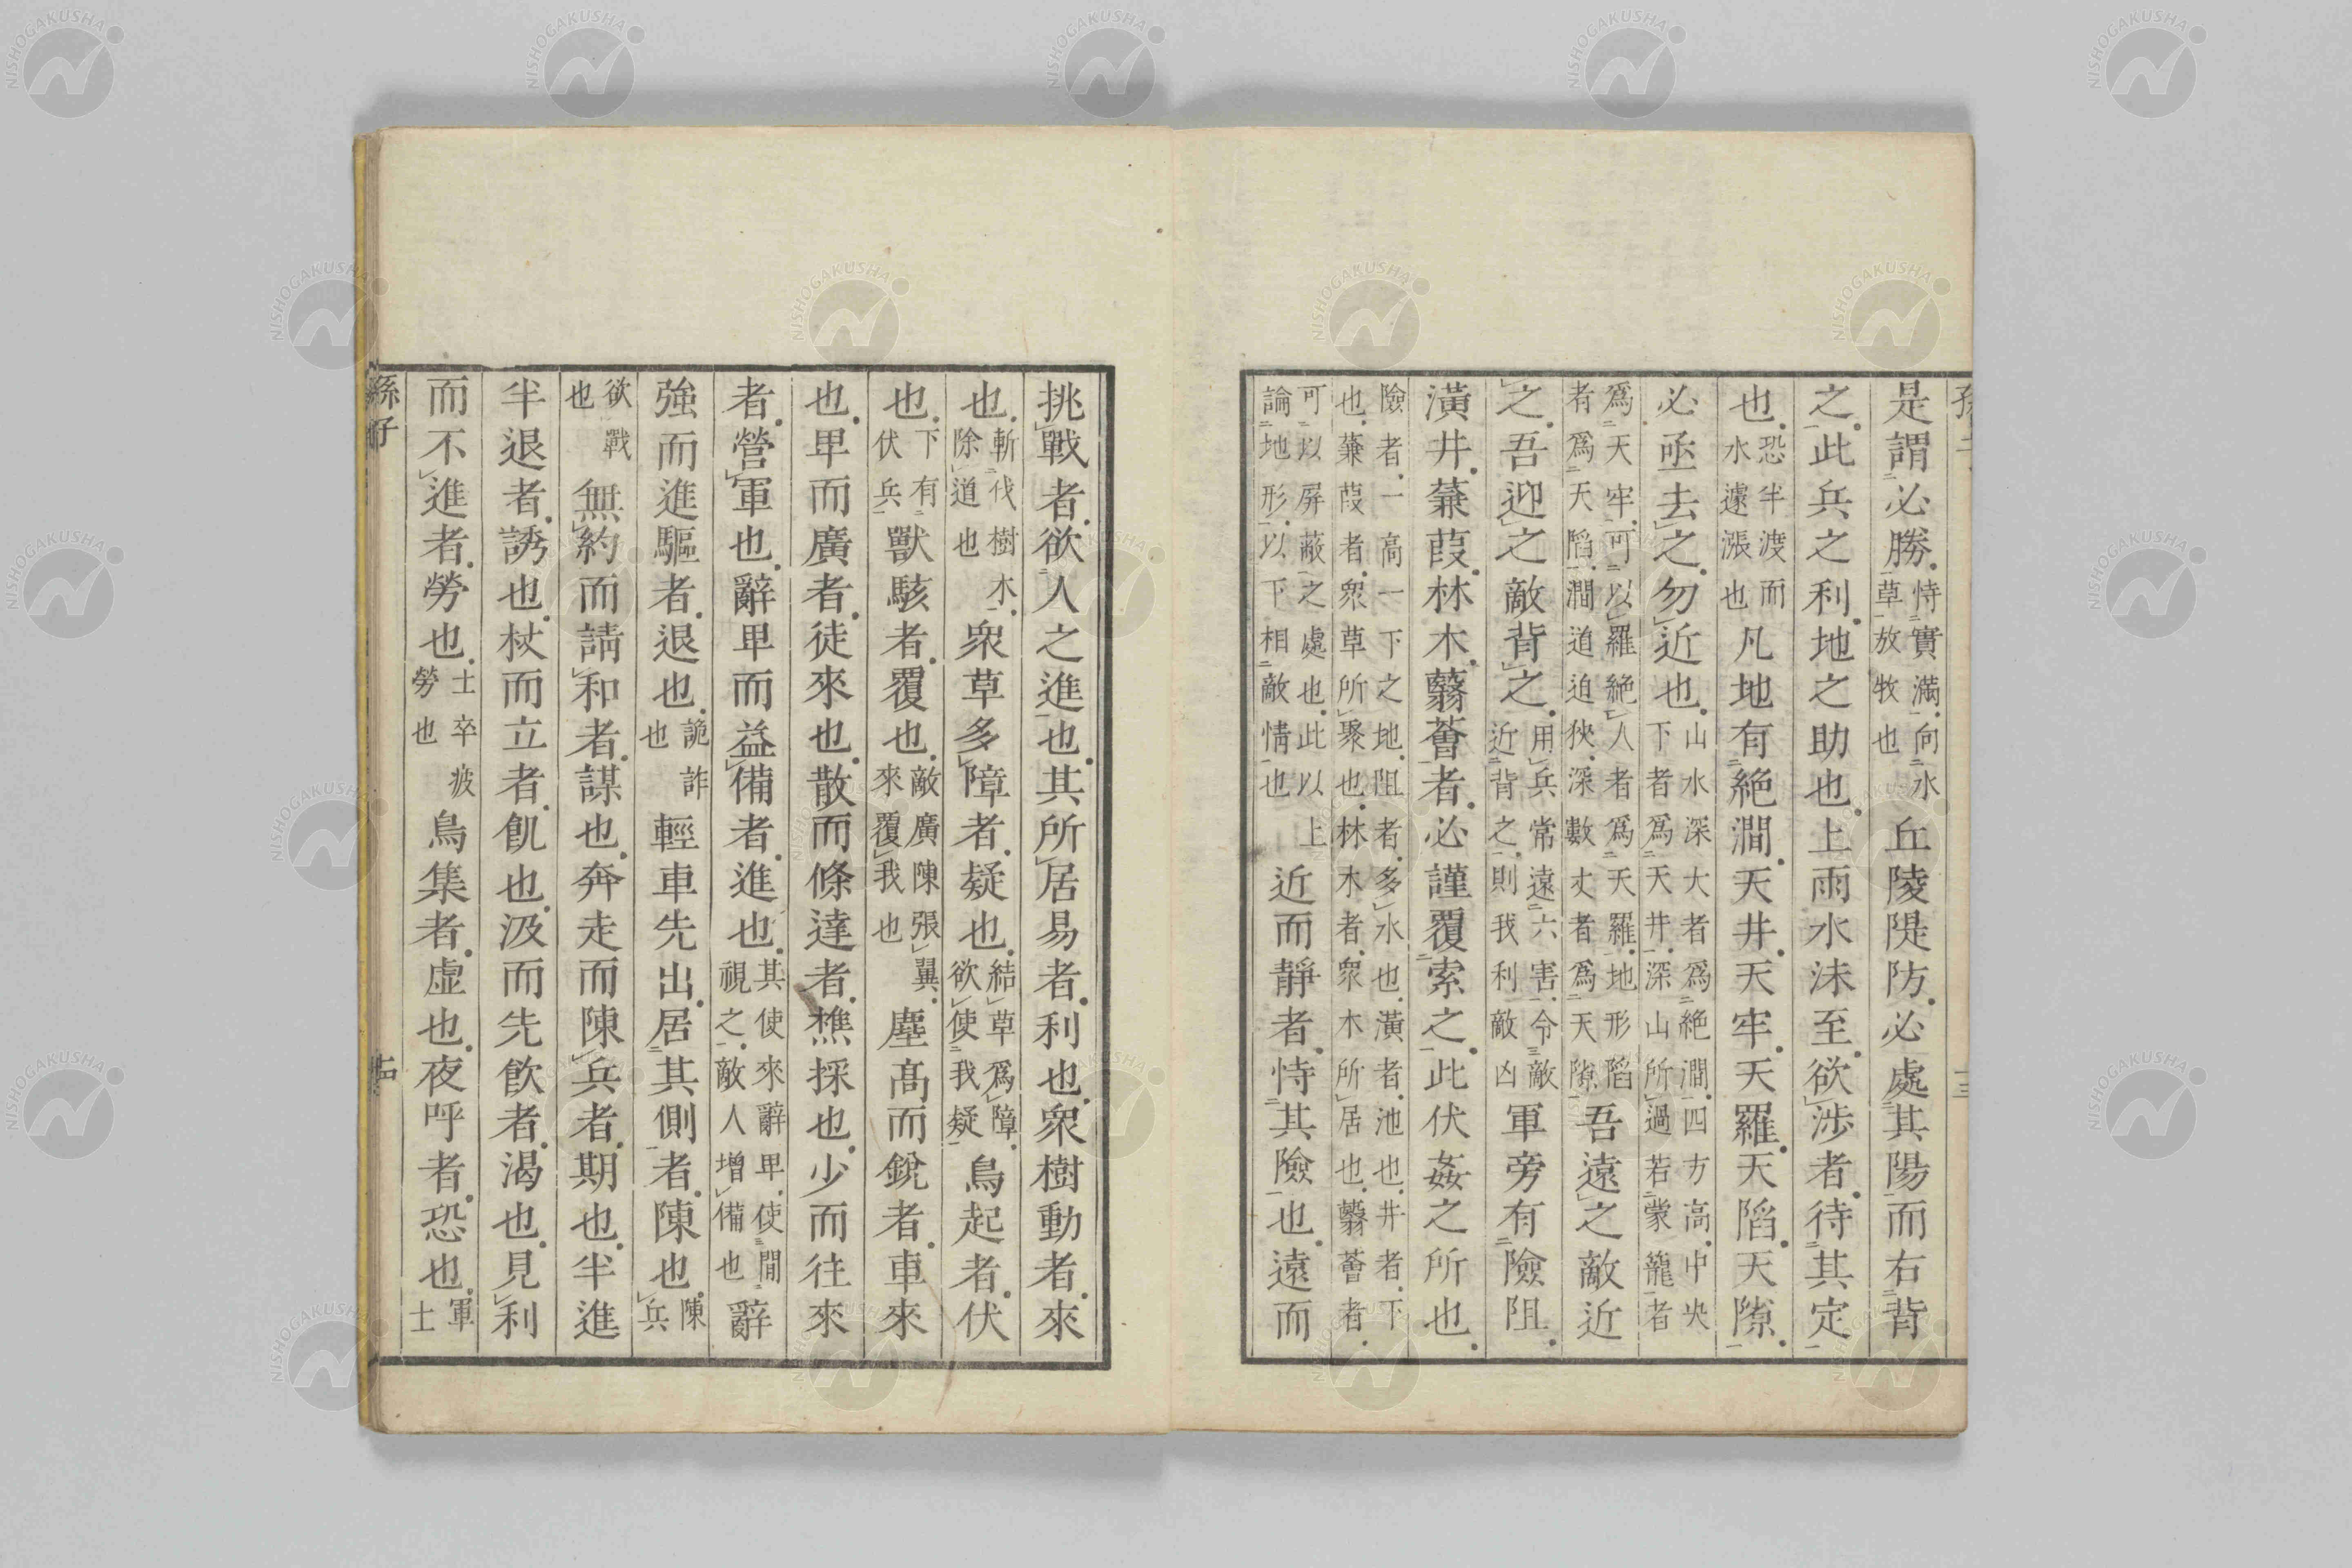 是謂必勝。恃實滿。向水草放牧也丘陵隄防。必處其陽而右背
之。此兵之利。地之助也。上雨水沫至。欲涉者。待其定
也。恐半渡而水遽漲也凡地有絶澗。天井。天牢。天羅。天陷。天隙。
必亟去之。勿近也。山水深大者爲絶澗。四方高。中央下者爲天井。深山所過若蒙籠者
爲天牢。可以羅絶人者爲天羅。地形陷者爲天陷。澗道迫狹。深數丈者爲天隙吾遠之敵近
之。吾迎之敵背之。用兵常遠六害。令敵近背之。則我利敵凶軍旁有險阻。
潢井。蒹葭。林木。蘙薈者。必謹覆索之。此伏姦之所也。
險者。一高一下之地。阻者。多水也。潢者。池也。井者。下也。蒹葭者。衆草所聚也。林木者。衆木所居也。蘙薈者。
可以屏蔽之處也。此以上論地形。以下相敵情也近而靜者。恃其險也。遠而
挑戰者。欲人之進也。其所居易者。利也。衆樹動者。來
也。斬伐樹木。除道也衆草多障者。疑也。結草爲障。欲使我疑鳥起者。伏
也。下有伏兵獸駭者。覆也。敵廣陳張翼。來覆我也塵高而銳者。車來
也。卑而廣者。徒來也。散而條達者。樵採也。少而往來
者。營軍也。辭卑而益備者。進也。其使來辭卑。使間視之。敵人增備也辭
強而進驅者。退也。詭詐也輕車先出。居其側者。陳也。陳兵
欲戰也無約而請和者。謀也。奔走而陳兵者。期也。半進
半退者。誘也。杖而立者。飢也。汲而先飲者。渴也。見利
而不進者。勞也。士卒疲勞也鳥集者。虛也。夜呼者。恐也。軍士
孫子